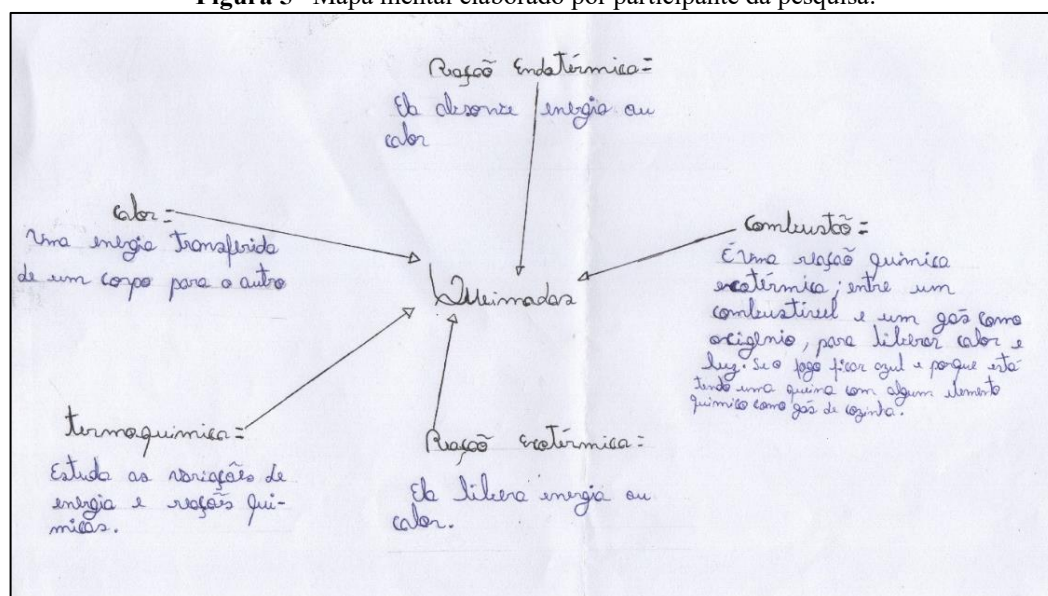 Figura 3 - Mapa mental elaborado por participante da pesquisa.
Reação Endotérmica =
Ela absorve energia ou
calor
Calor =
Uma energia transferida
de um corpo para o outro
Combustão =
É uma reação química
exotérmica; entre um
combustível e um gás como
oxigênio, para liberar calor e
luz. Se o fogo ficar azul e porque está
tendo uma queima com algum elemento
químico como gás de cozinha.
Queimadas
termoquímica =
Estuda as variações de
energia e reações quí-
micas.
Reação exotérmica =
Ela libera energia ou
calor.